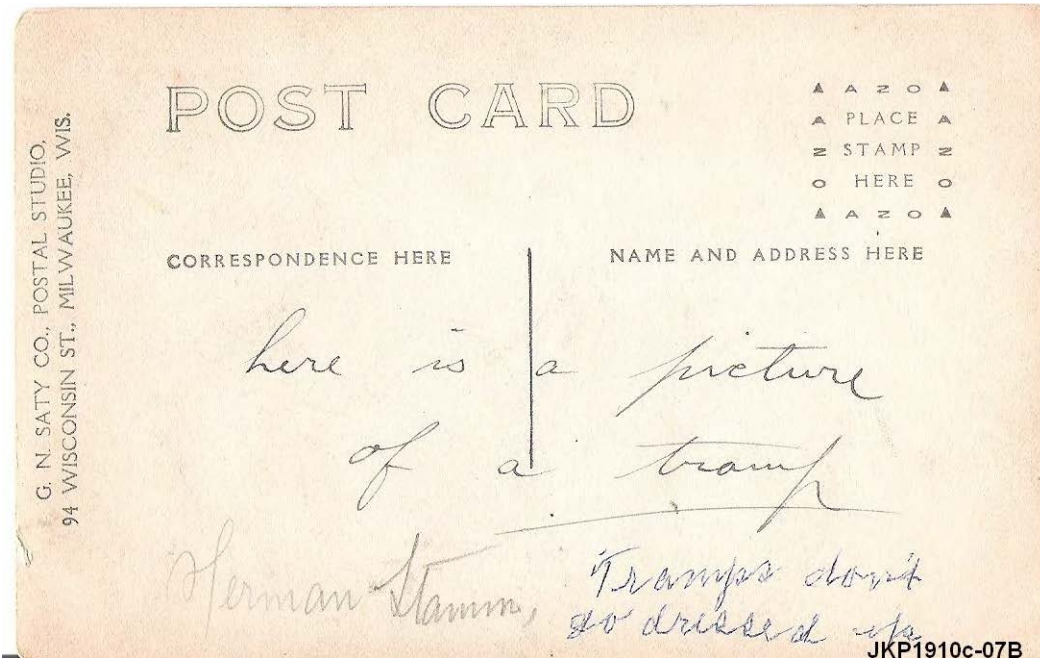 G. N. SATY CO., POSTAL STUDIO,
94 WISCONSIN ST., MILWAUKEE, WIS.
POST CARD
▲ A Z O ▲
A PLACE A
Z STAMP Z
O HERE O
▲ A Z O ▲
CORRESPONDENCE HERE
NAME AND ADDRESS HERE
here is a picture
of a tramp
Herman Stamm,
Tramps don't
go dressed up
JKP1910c-07B